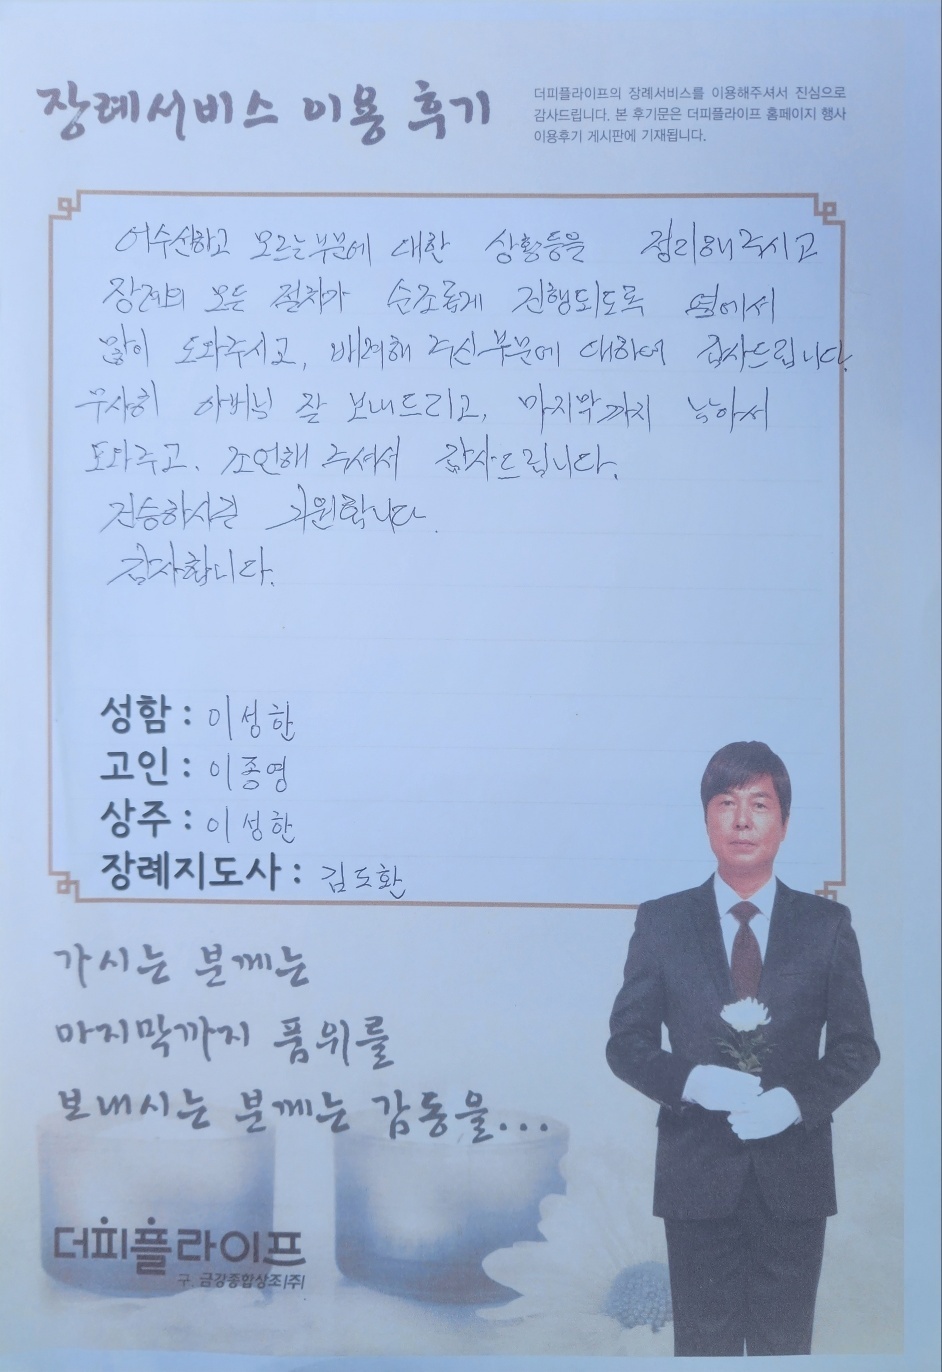 장례서비스 이용 후기
더피플라이프의 장례서비스를 이용해주셔서 진심으로
감사드립니다. 본 후기문은 더피플라이프 홈페이지 행사
이용후기 게시판에 기재됩니다.
어수선하고 모르는부분에 대한 상황등을 정리해주시고
장례의 모든 절차가 순조롭게 진행되도록 옆에서
많이 도와주시고, 배려해 주신부분에 대하여 감사드립니다.
무사히 아버님 잘 보내드리고, 마지막까지 남아서
도와주고. 조언해 주셔서 감사드립니다.
건승하시길 기원합니다.
감사합니다.
성함 : 이성한
고인 : 이종영
상주 : 이성한
장례지도사 : 김도환
가시는 분께는
마지막까지 품위를
보내시는 분께는 감동을...
더피플라이프
구. 금강종합상조(주)